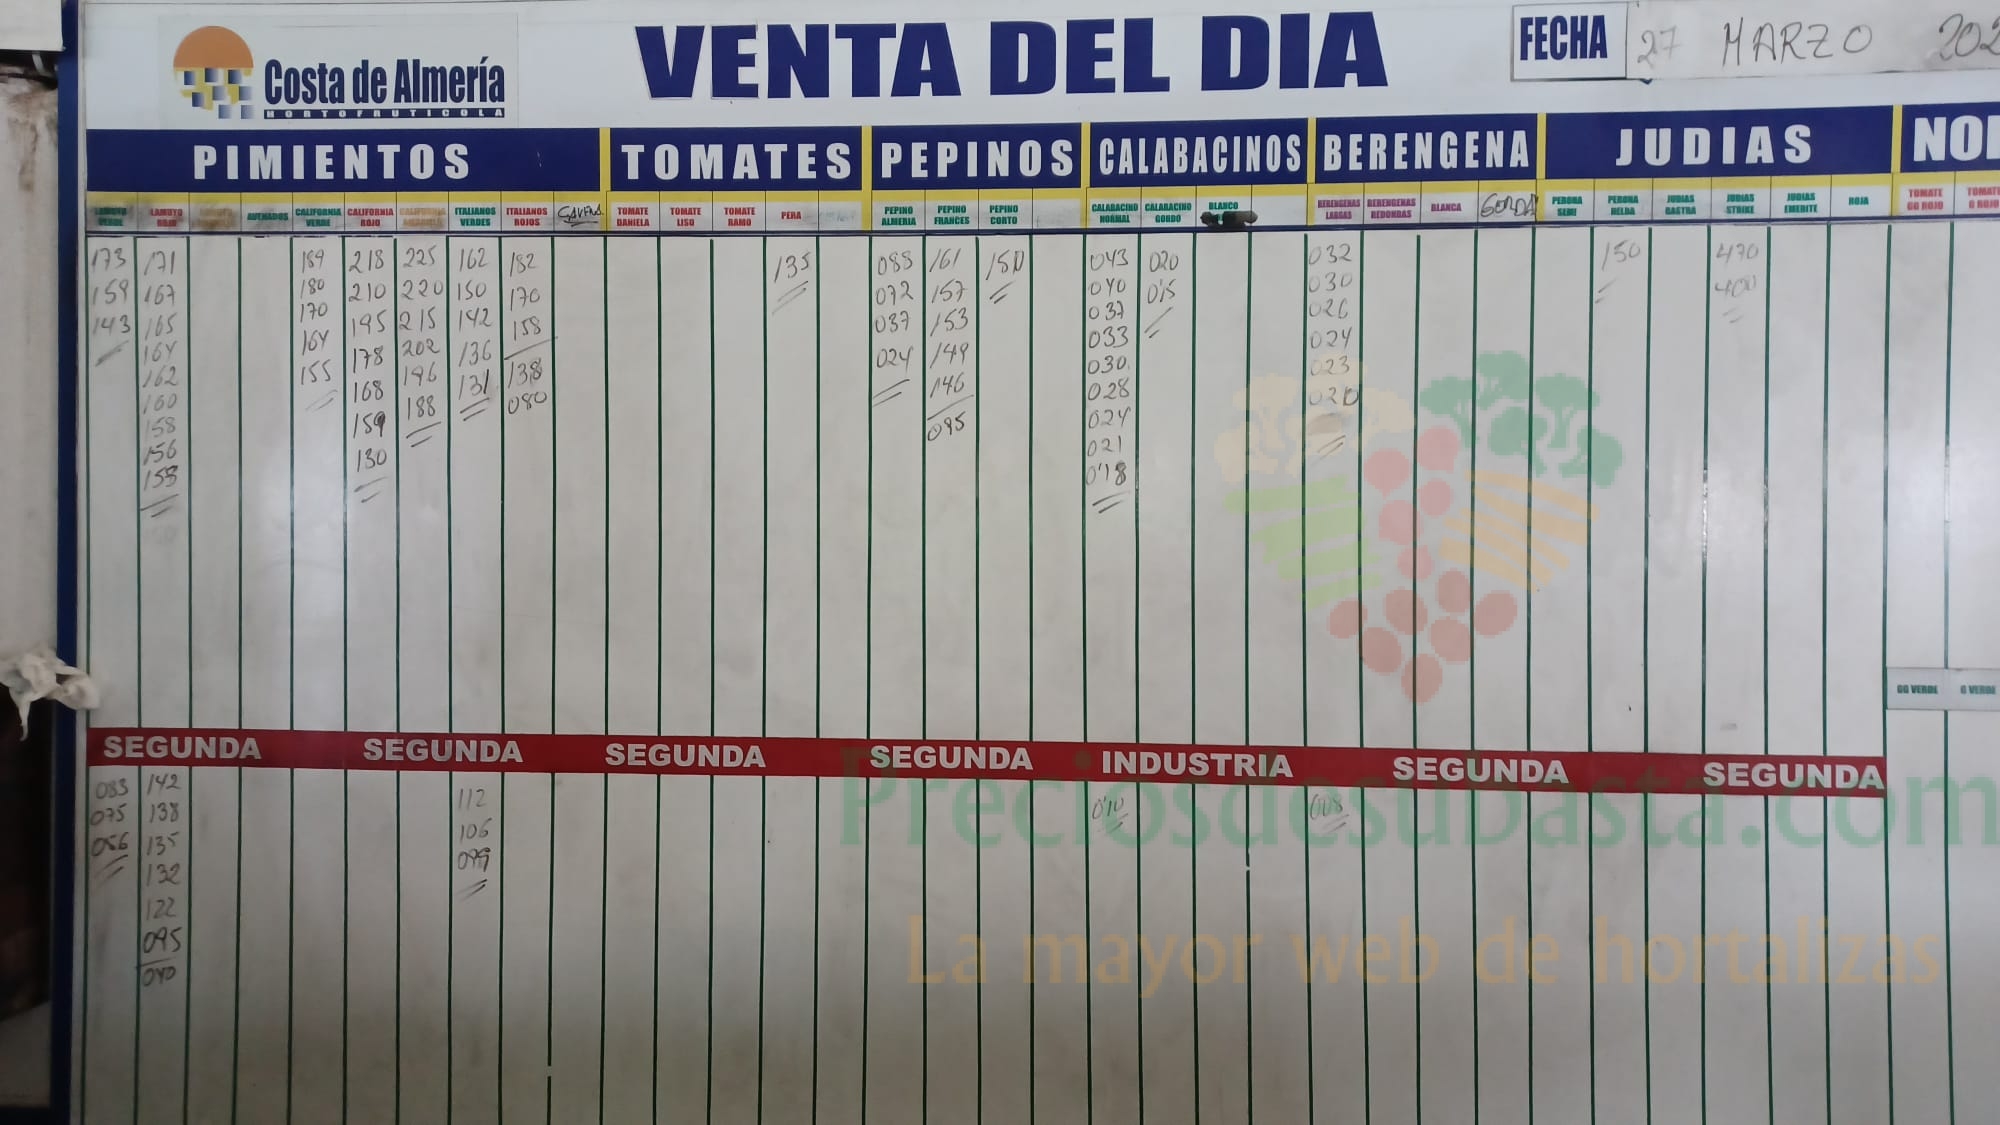 Costa de Almería
HORTOFRUTICOLA
VENTA DEL DIA
FECHA 27 MARZO 202
PIMIENTOS TOMATES PEPINOS CALABACINOS BERENGENA JUDIAS NOI
LAMUYO VERDE
LAMUYO ROJO
ASURADOS
CALIFORNIA VERDE
CALIFORNIA ROJO
CALIFORNIA AMARILLO
ITALIANOS VERDES
ITALIANOS ROJOS
TOMATE DANIELA
TOMATE LISO
TOMATE RAMO
PERA
PEPINO ALMERIA
PEPINO FRANCES
PEPINO CORTO
CALABACINO NORMAL
CALABACINO GORDO
BLANCO
BERENGENAS LARGAS
BERENGENAS REDONDAS
BLANCA
GORDA
PERONA SEMI
PERONA HELDA
JUDIAS RASTRA
JUDIAS STRIKE
JUDIAS EMERITE
ROJA
TOMATE GG ROJO
TOMATE G ROJO
173
159
143
171
167
165
164
162
160
158
156
153
189
180
170
164
155
218
210
195
178
168
159
130
225
220
215
202
196
188
162
150
142
136
131
182
170
158
138
080
135
088
072
037
024
161
157
153
149
146
095
150
043
040
037
033
030
028
024
021
0'18
020
0'15
032
030
026
024
023
020
150
470
400
GG VERDE G VERDE
SEGUNDA SEGUNDA SEGUNDA SEGUNDA INDUSTRIA SEGUNDA SEGUNDA
083
075
056
142
138
135
132
122
095
040
112
106
099
0'10
008
Preciosdesubasta.com
La mayor web de hortalizas